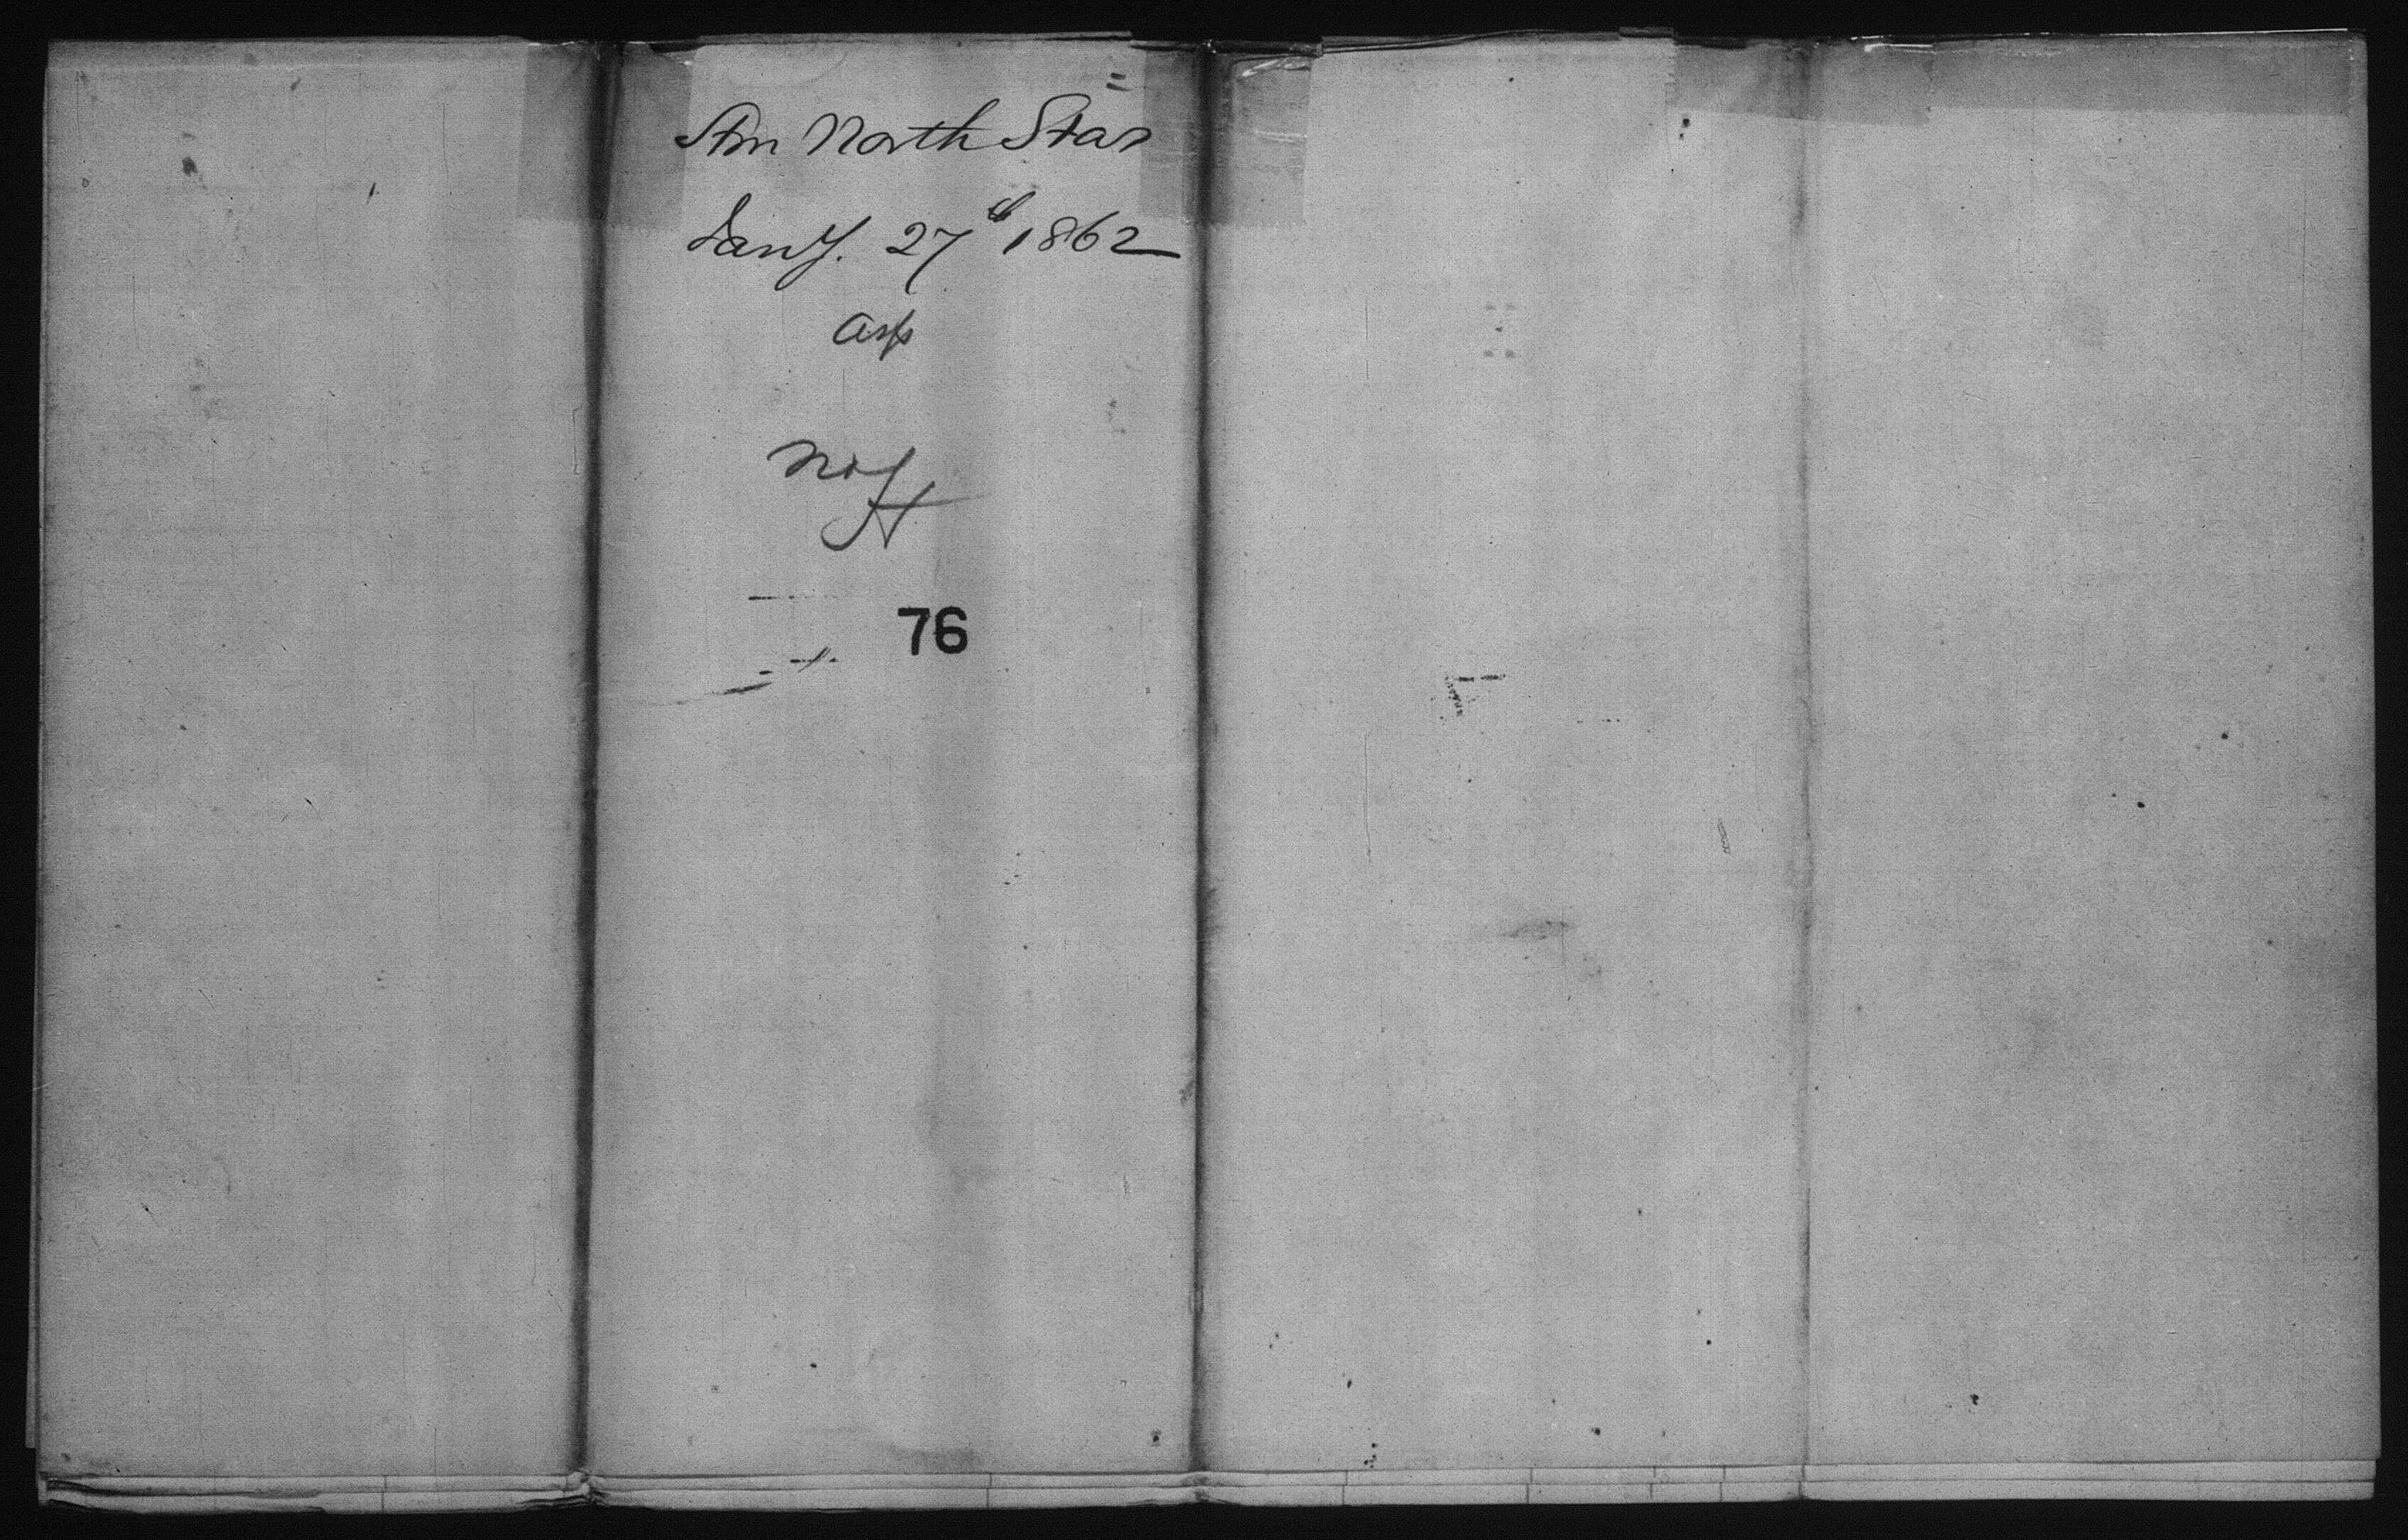 Stm North Star
Jany. 27th 1862
Asp
76